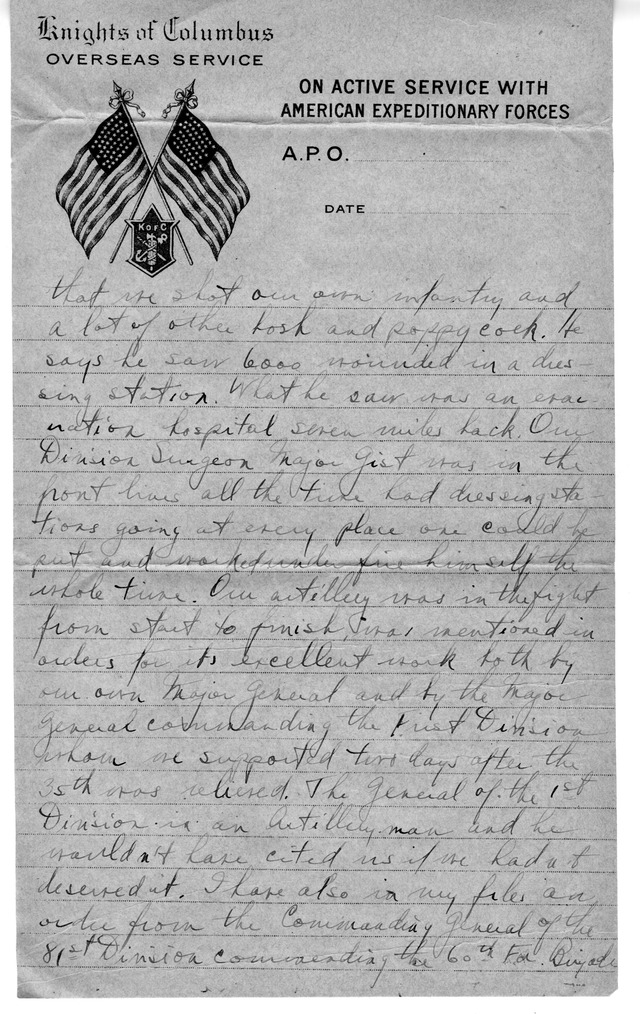 Knights of Columbus
OVERSEAS SERVICE
ON ACTIVE SERVICE WITH
AMERICAN EXPEDITIONARY FORCES
A.P.O.
DATE
K of C
that we shot our own infantry and
a lot of other bosh and poppy cock. He
says he saw 6000 wounded in a dres-
sing station. What he saw was an evac-
uation hospital seven miles back. Our
Division Surgeon Major Gist was in the
front lines all the time had dressing sta-
tions going at every place one could be
put and worked under fire himself the
whole time. Our artillery was in the fight
from start to finish, was mentioned in
orders for its excellent work both by
our own Major General and by the Major
General commanding the First Division
whom we supported two days after the
35th was relieved. The General of the 1st
Division is an Artillery man and he
wouldn't have cited us if we hadn't
deserved it. I have also in my files an
order from the Commanding General of the
81st Division commending the 60th F.A. Brigade